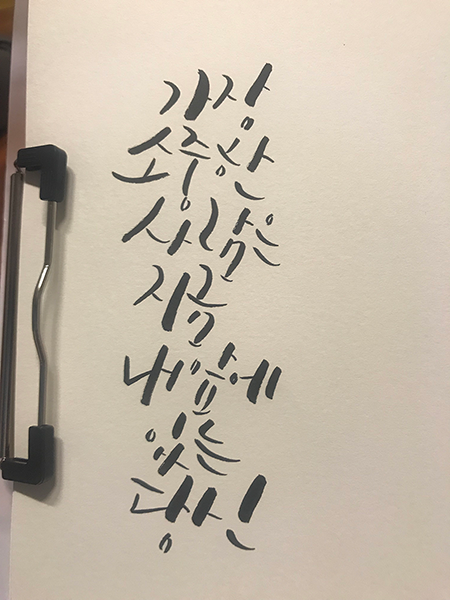 가장
소중한
사람은
지금
내앞에
있는
당신